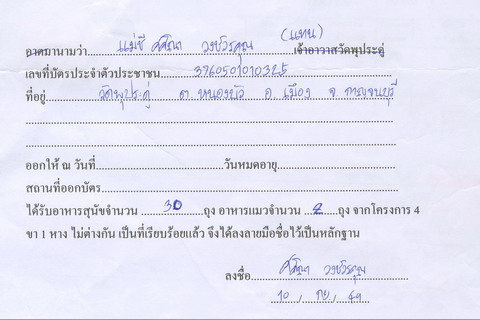 อาตมานามว่า.......แม่ชี ศศิณา วงชัวรคุณ (แทน) เจ้าอาวาสวัดพุประดู่
เลขที่บัตรประจำตัวประชาชน.......3760501010325
ที่อยู่.......วัดพุประดู่ ต. หนองบัว อ. เมือง จ. กาญจนบุรี
ออกให้ ณ วันที่.......วันหมดอายุ.......
สถานที่ออกบัตร.......
ได้รับอาหารสุนัขจำนวน .......30.......ถุง อาหารแมวจำนวน ...2...ถุง จากโครงการ 4
ขา 1 หาง ไม่ต่างกัน เป็นที่เรียบร้อยแล้ว จึงได้ลงลายมือชื่อไว้เป็นหลักฐาน
ลงชื่อ.......ศศิณา วงชัวรคุณ
10 / กย / 49